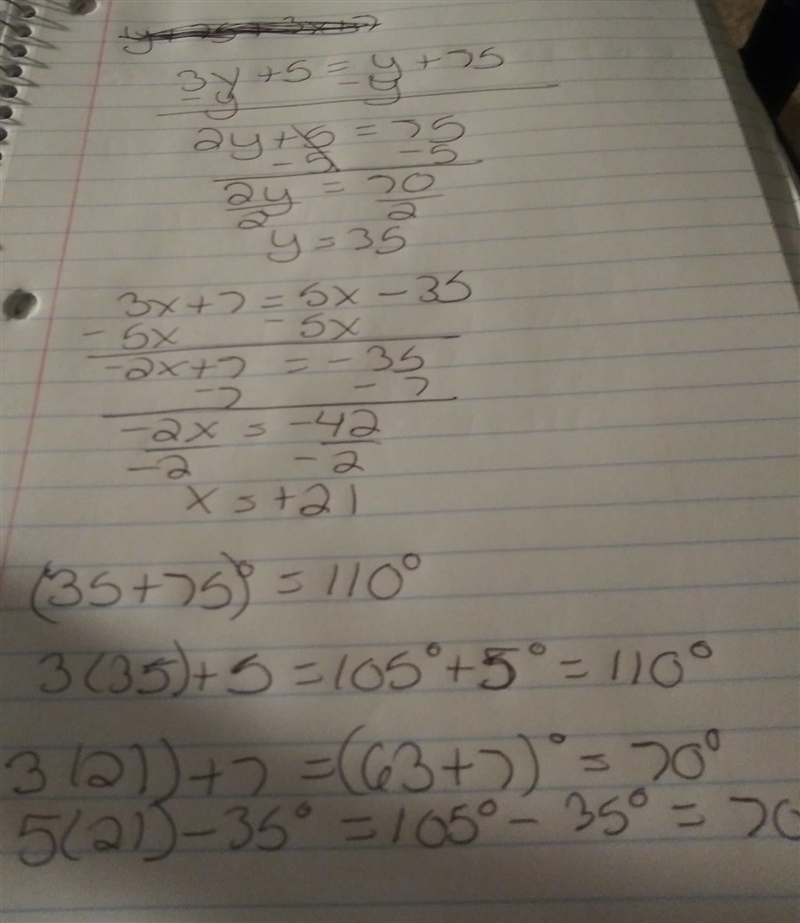 3y + 5 = y + 75
- y - y
2y + 5 = 75
- 5 - 5
2y = 70
2 2
y = 35
3x + 7 = 5x - 35
- 5x - 5x
-2x + 7 = -35
- 7 - 7
-2x = -42
-2 -2
x = +21
(35 + 75)° = 110°
3(35) + 5 = 105° + 5° = 110°
3(21) + 7 = (63 + 7)° = 70°
5(21) - 35° = 105° - 35° = 70